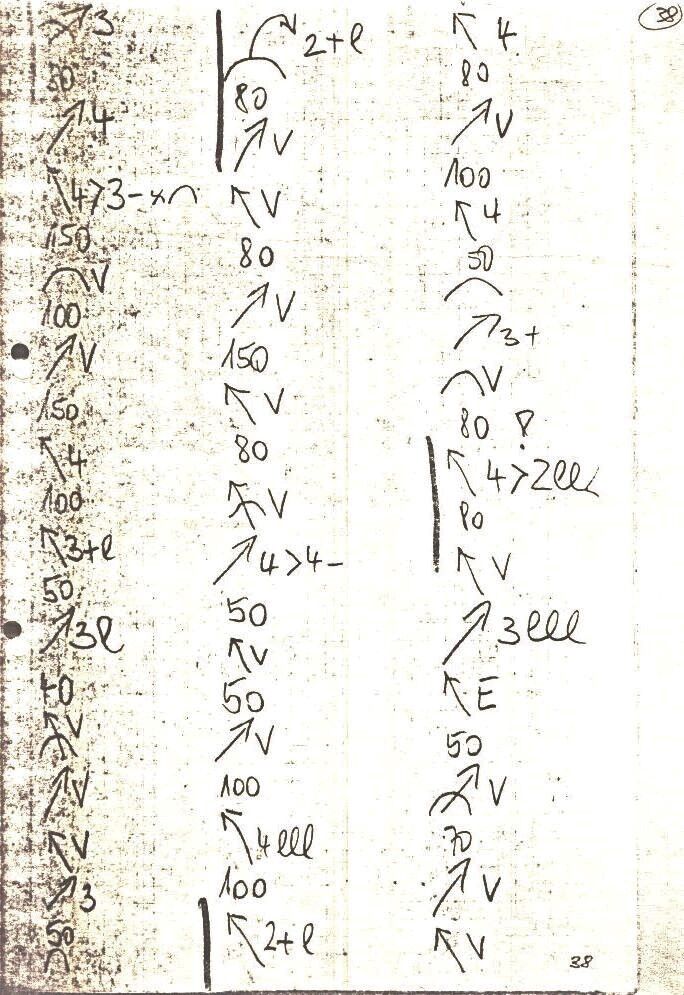 38
3
50
4
4>3-x⌒
150
V
100
V
150
4
100
3+l
50
3l
40
V
V
V
3
50
2+l
80
V
V
80
V
150
V
80
V
4>4-
50
V
50
V
100
4lll
100
2+l
4
80
V
100
4
50
3+
V
80 !
4>2lll
80
V
3lll
E
50
V
70
V
V
38